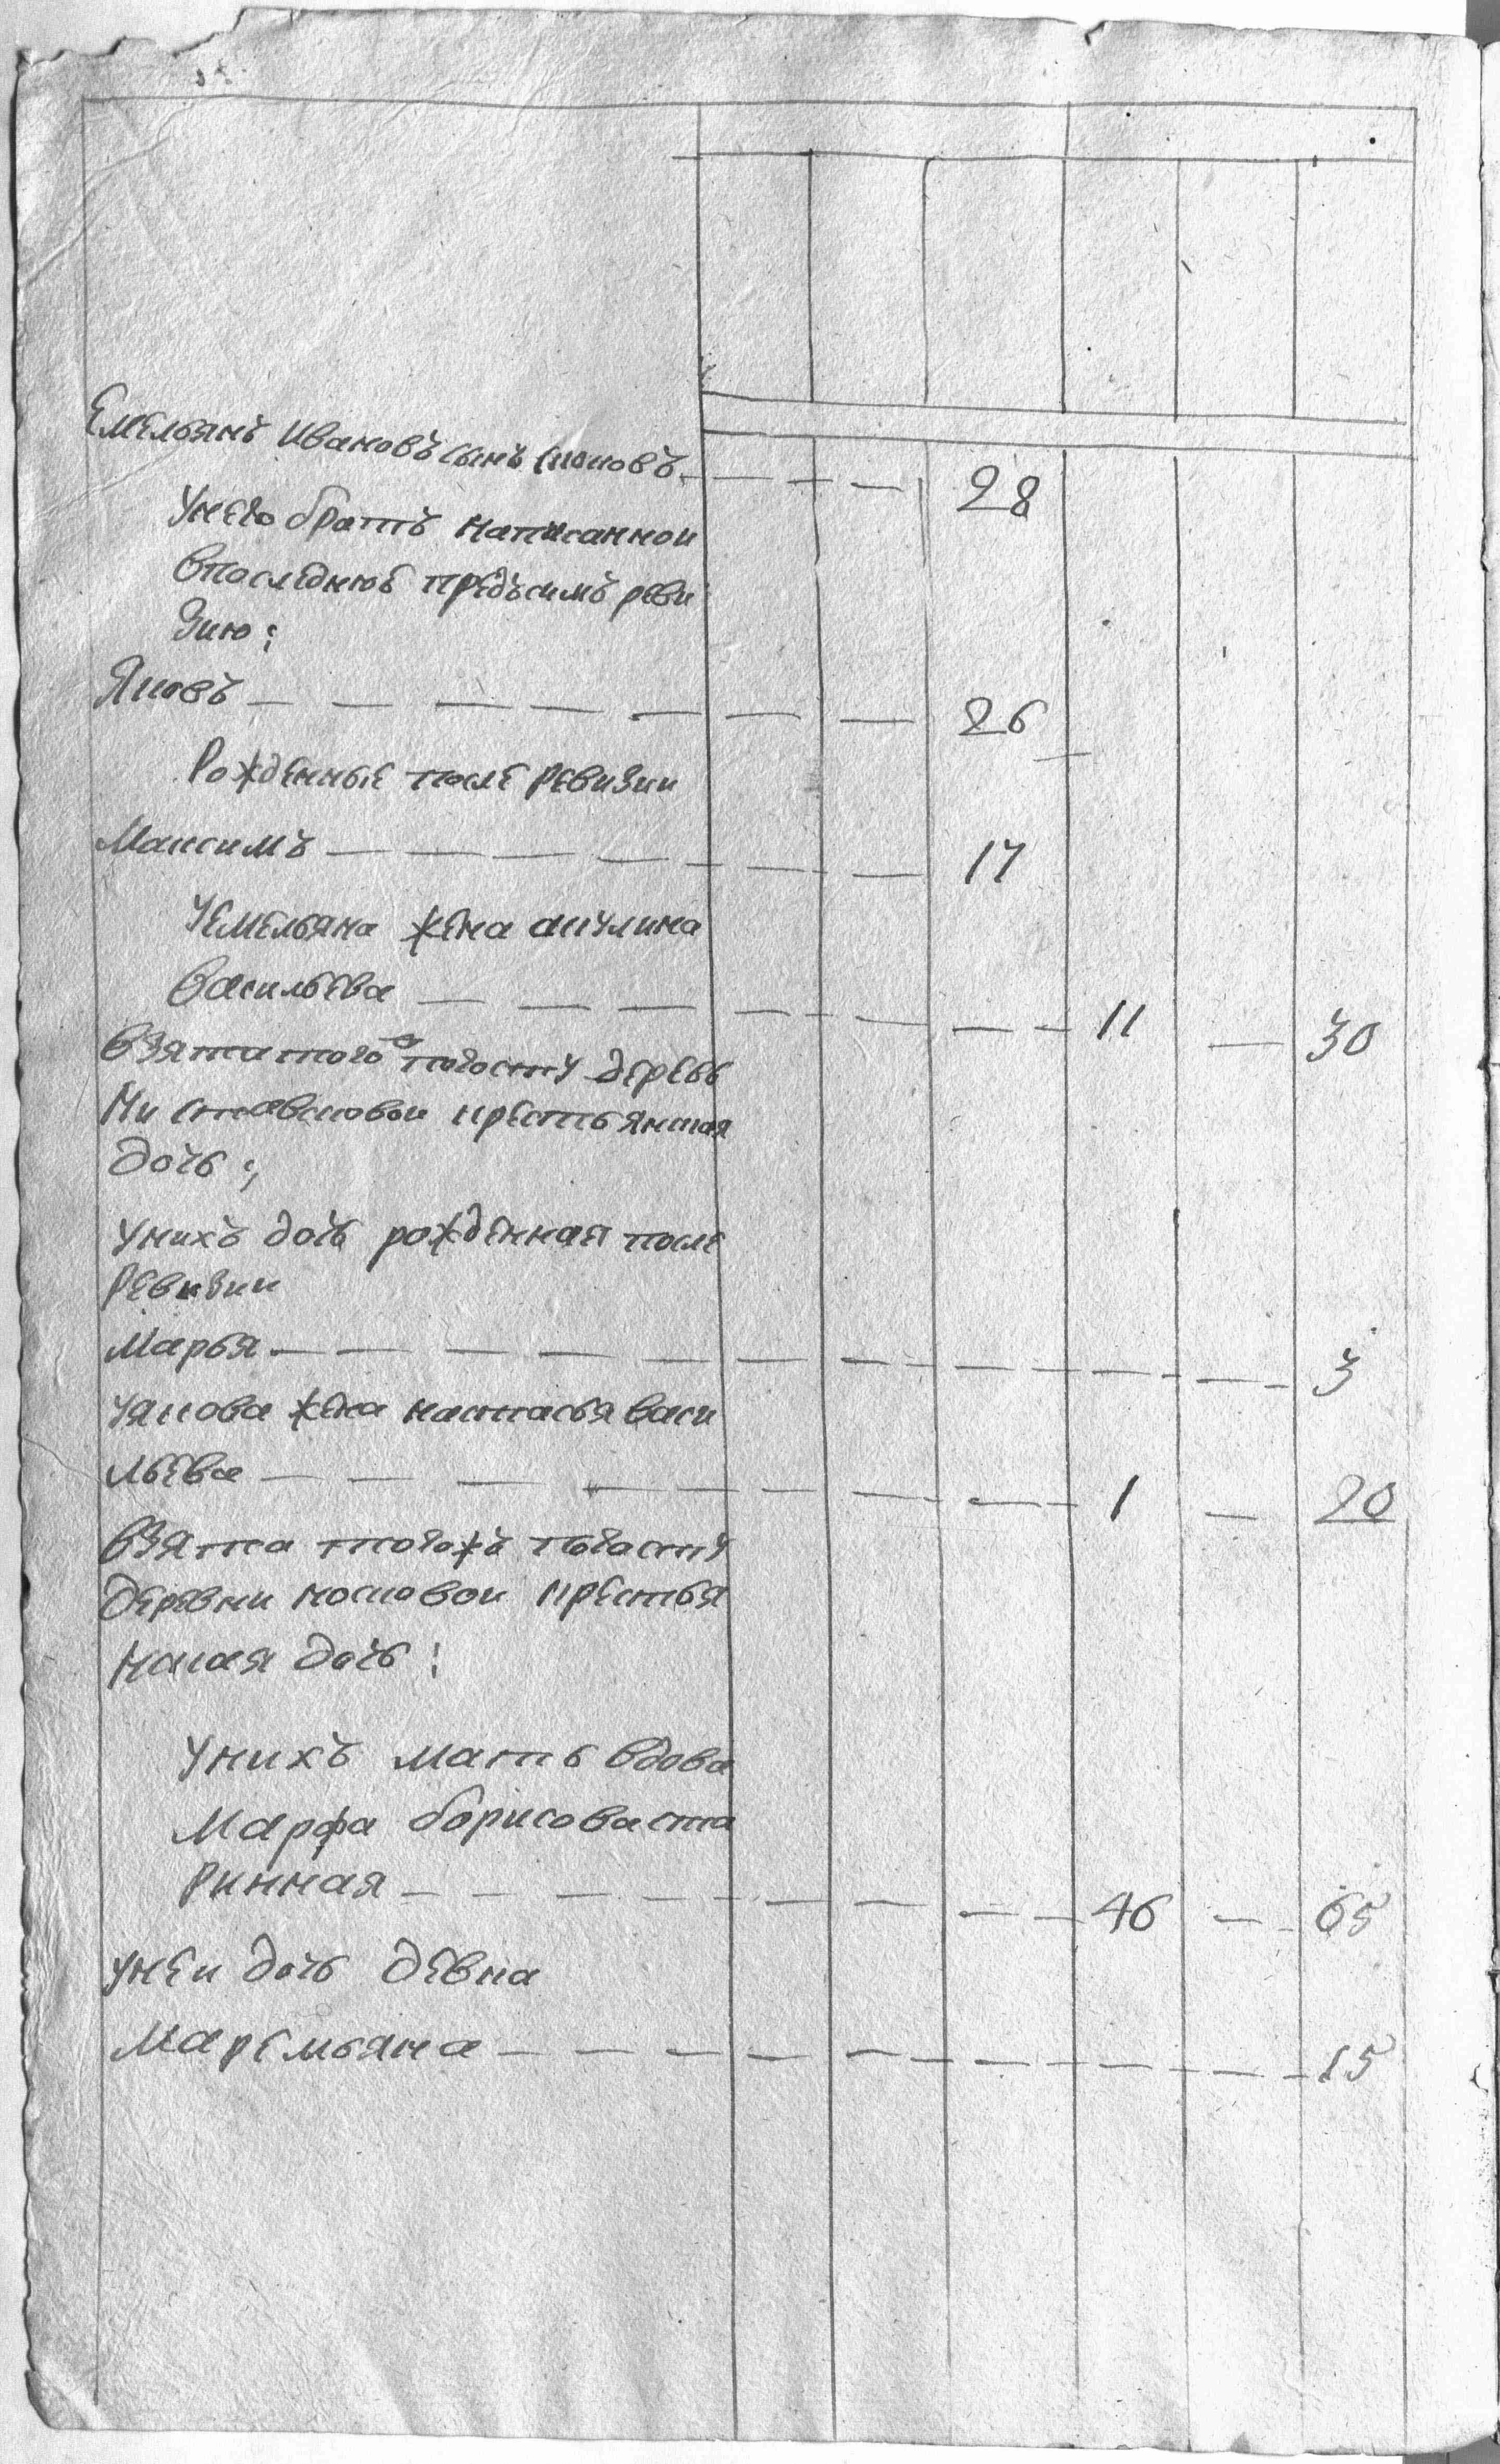 Емельянъ Ивановъ сынъ — — — 28
Унего братъ написанной
впоследнюе предъсимъ реви
зию:
Яковъ — — — — — — — 26
Рожденные после ревизии
Максимъ — — — — — — 17
Уемельяна жена акулина
васильева — — — — — — 11 — 30
взята того ж погосту деревь
ни ставсковои крестьянская
дочь:
Унихъ дочь рожденная после
ревизии
Марья — — — — — — — — — — 3
Уякова жена настасья васи
льева — — — — — — — — 1 — 20
взята тогожъ погосту
деревни носковои крестья
нская дочь:
Унихъ мать вдова
Марфа борисова ста
ринная — — — — — — — — 46 — 65
Унеи дочь девка
Маремьяна — — — — — — — — — 15